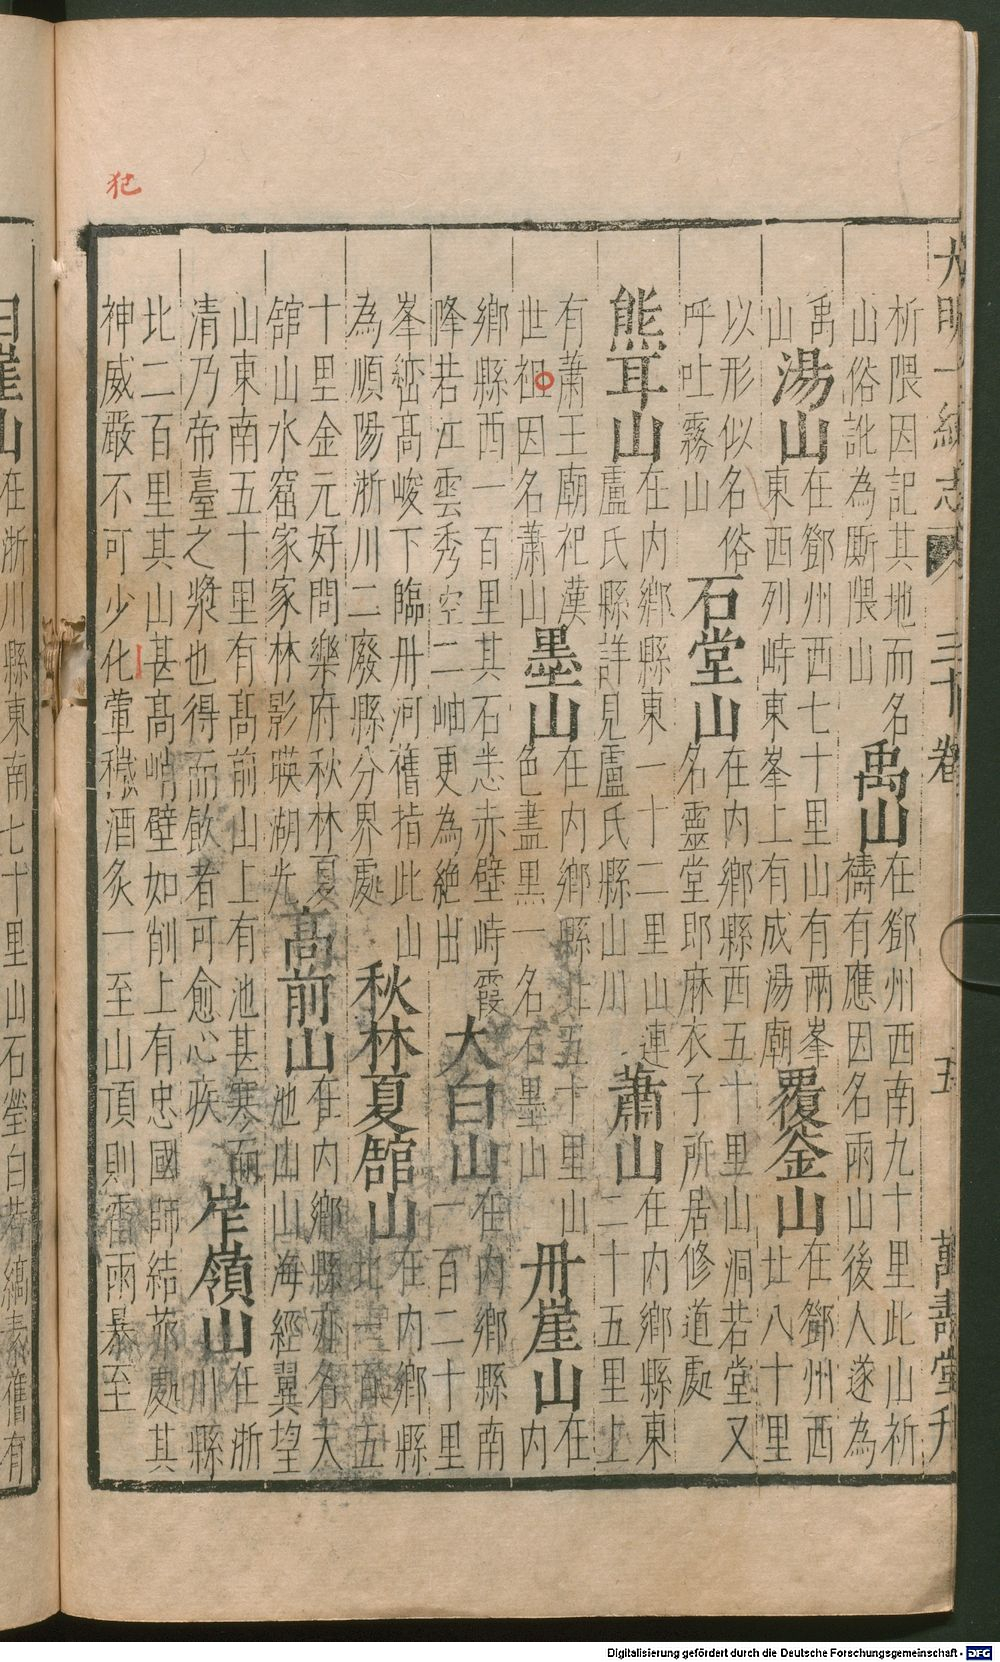 大明一統志 三十卷 五 萬壽堂刊
析隈因記其地而名
山俗訛為厮隈山
禹山
在鄧州西南九十里此山祈
禱有應因名兩山後人遂為
禹
山
湯山
在鄧州西七十里山有兩峯
東西列峙東峯上有成湯廟
覆釜山
在鄧州西
北八十里
以形似名俗
呼吐霧山
石堂山
在內鄉縣西五十里山洞若堂又
名靈堂郎麻衣子所居修道處
熊耳山
在内鄉縣東一十二里山連
盧氏縣詳見盧氏縣山川
蕭山
在内鄉縣東
二十五里上
有蕭王廟祀漢
世祖因名蕭山
墨山
在内鄉縣北五十里山
色盡黑一名石墨山
丹崖山
在
内
鄉縣西一百里其石悉赤壁峙霞
峰若江雲秀空二岫更為絶出
大白山
在内鄉縣南
一百二十里
峯巒髙峻下臨丹河舊指此山
為順陽淅川二廢縣分界處
秋林夏館山
在内鄉縣
北一百五
十里金元好問樂府秋林夏
舘山水窟家家林影暎湖光
高前山
在内鄉縣亦名天
池山山海經翼望
山東南五十里有髙前山上有池甚寒而
清乃帝臺之漿也得而飲者可愈心疾
岞嶺山
在淅
川縣
北二百里其山甚髙峭壁如削上有忠國師結茅處其
神威嚴不可少化葷穢酒炙一至山頂則雷雨暴至
白崖山
在淅川縣東南七十里山石瑩白若縞素舊有
犯
Digitalisierung gefördert durch die Deutsche Forschungsgemeinschaft - DFG